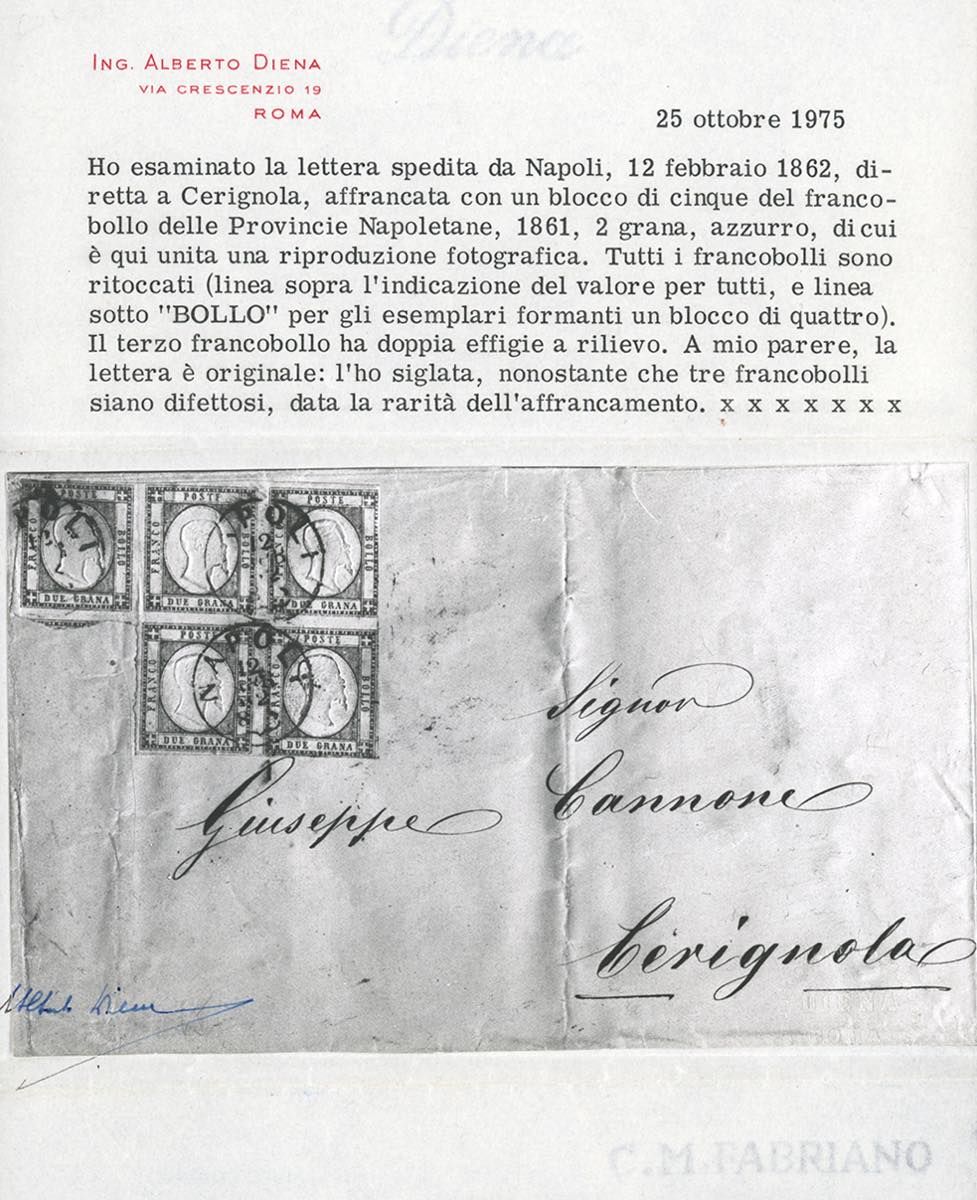 Diena
ING. ALBERTO DIENA
VIA CRESCENZIO 19
ROMA
25 ottobre 1975
Ho esaminato la lettera spedita da Napoli, 12 febbraio 1862, di-
retta a Cerignola, affrancata con un blocco di cinque del franco-
bollo delle Provincie Napoletane, 1861, 2 grana, azzurro, di cui
è qui unita una riproduzione fotografica. Tutti i francobolli sono
ritoccati (linea sopra l'indicazione del valore per tutti, e linea
sotto "BOLLO" per gli esemplari formanti un blocco di quattro).
Il terzo francobollo ha doppia effigie a rilievo. A mio parere, la
lettera è originale: l'ho siglata, nonostante che tre francobolli
siano difettosi, data la rarità dell'affrancamento. x x x x x x x
POSTE POSTE POSTE
FRANCO BOLLO FRANCO BOLLO FRANCO BOLLO
DUE GRANA DUE GRANA DUE GRANA
POSTE POSTE
FRANCO BOLLO FRANCO BOLLO
NAPOLI
12
DUE GRANA DUE GRANA
Signor
Giuseppe Cannone
Cerignola
Alberto Diena
DIENA
ROMA
C.M.FABRIANO